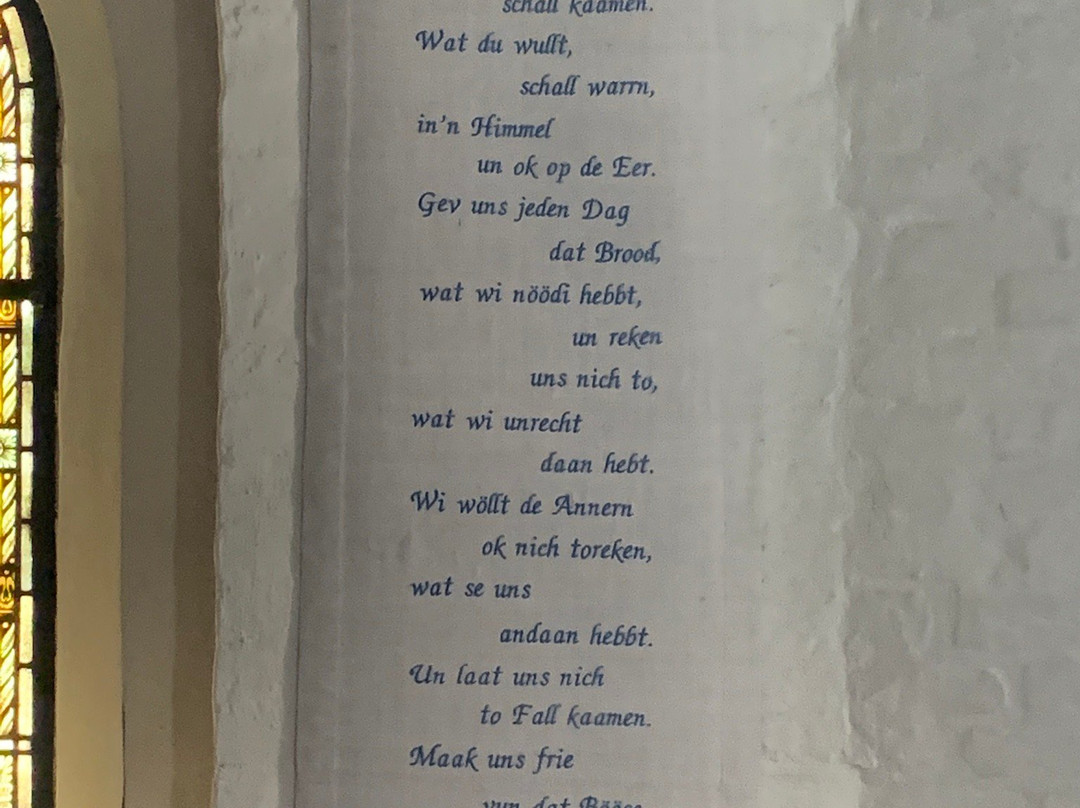 schall kaamen.
Wat du wullt,
schall warrn,
in'n Himmel
un ok op de Eer.
Gev uns jeden Dag
dat Brood,
wat wi nöödi hebbt,
un reken
uns nich to,
wat wi unrecht
daan hebt.
Wi wöllt de Annern
ok nich toreken,
wat se uns
andaan hebbt.
Un laat uns nich
to Fall kaamen.
Maak uns frie
vun dat Bööse